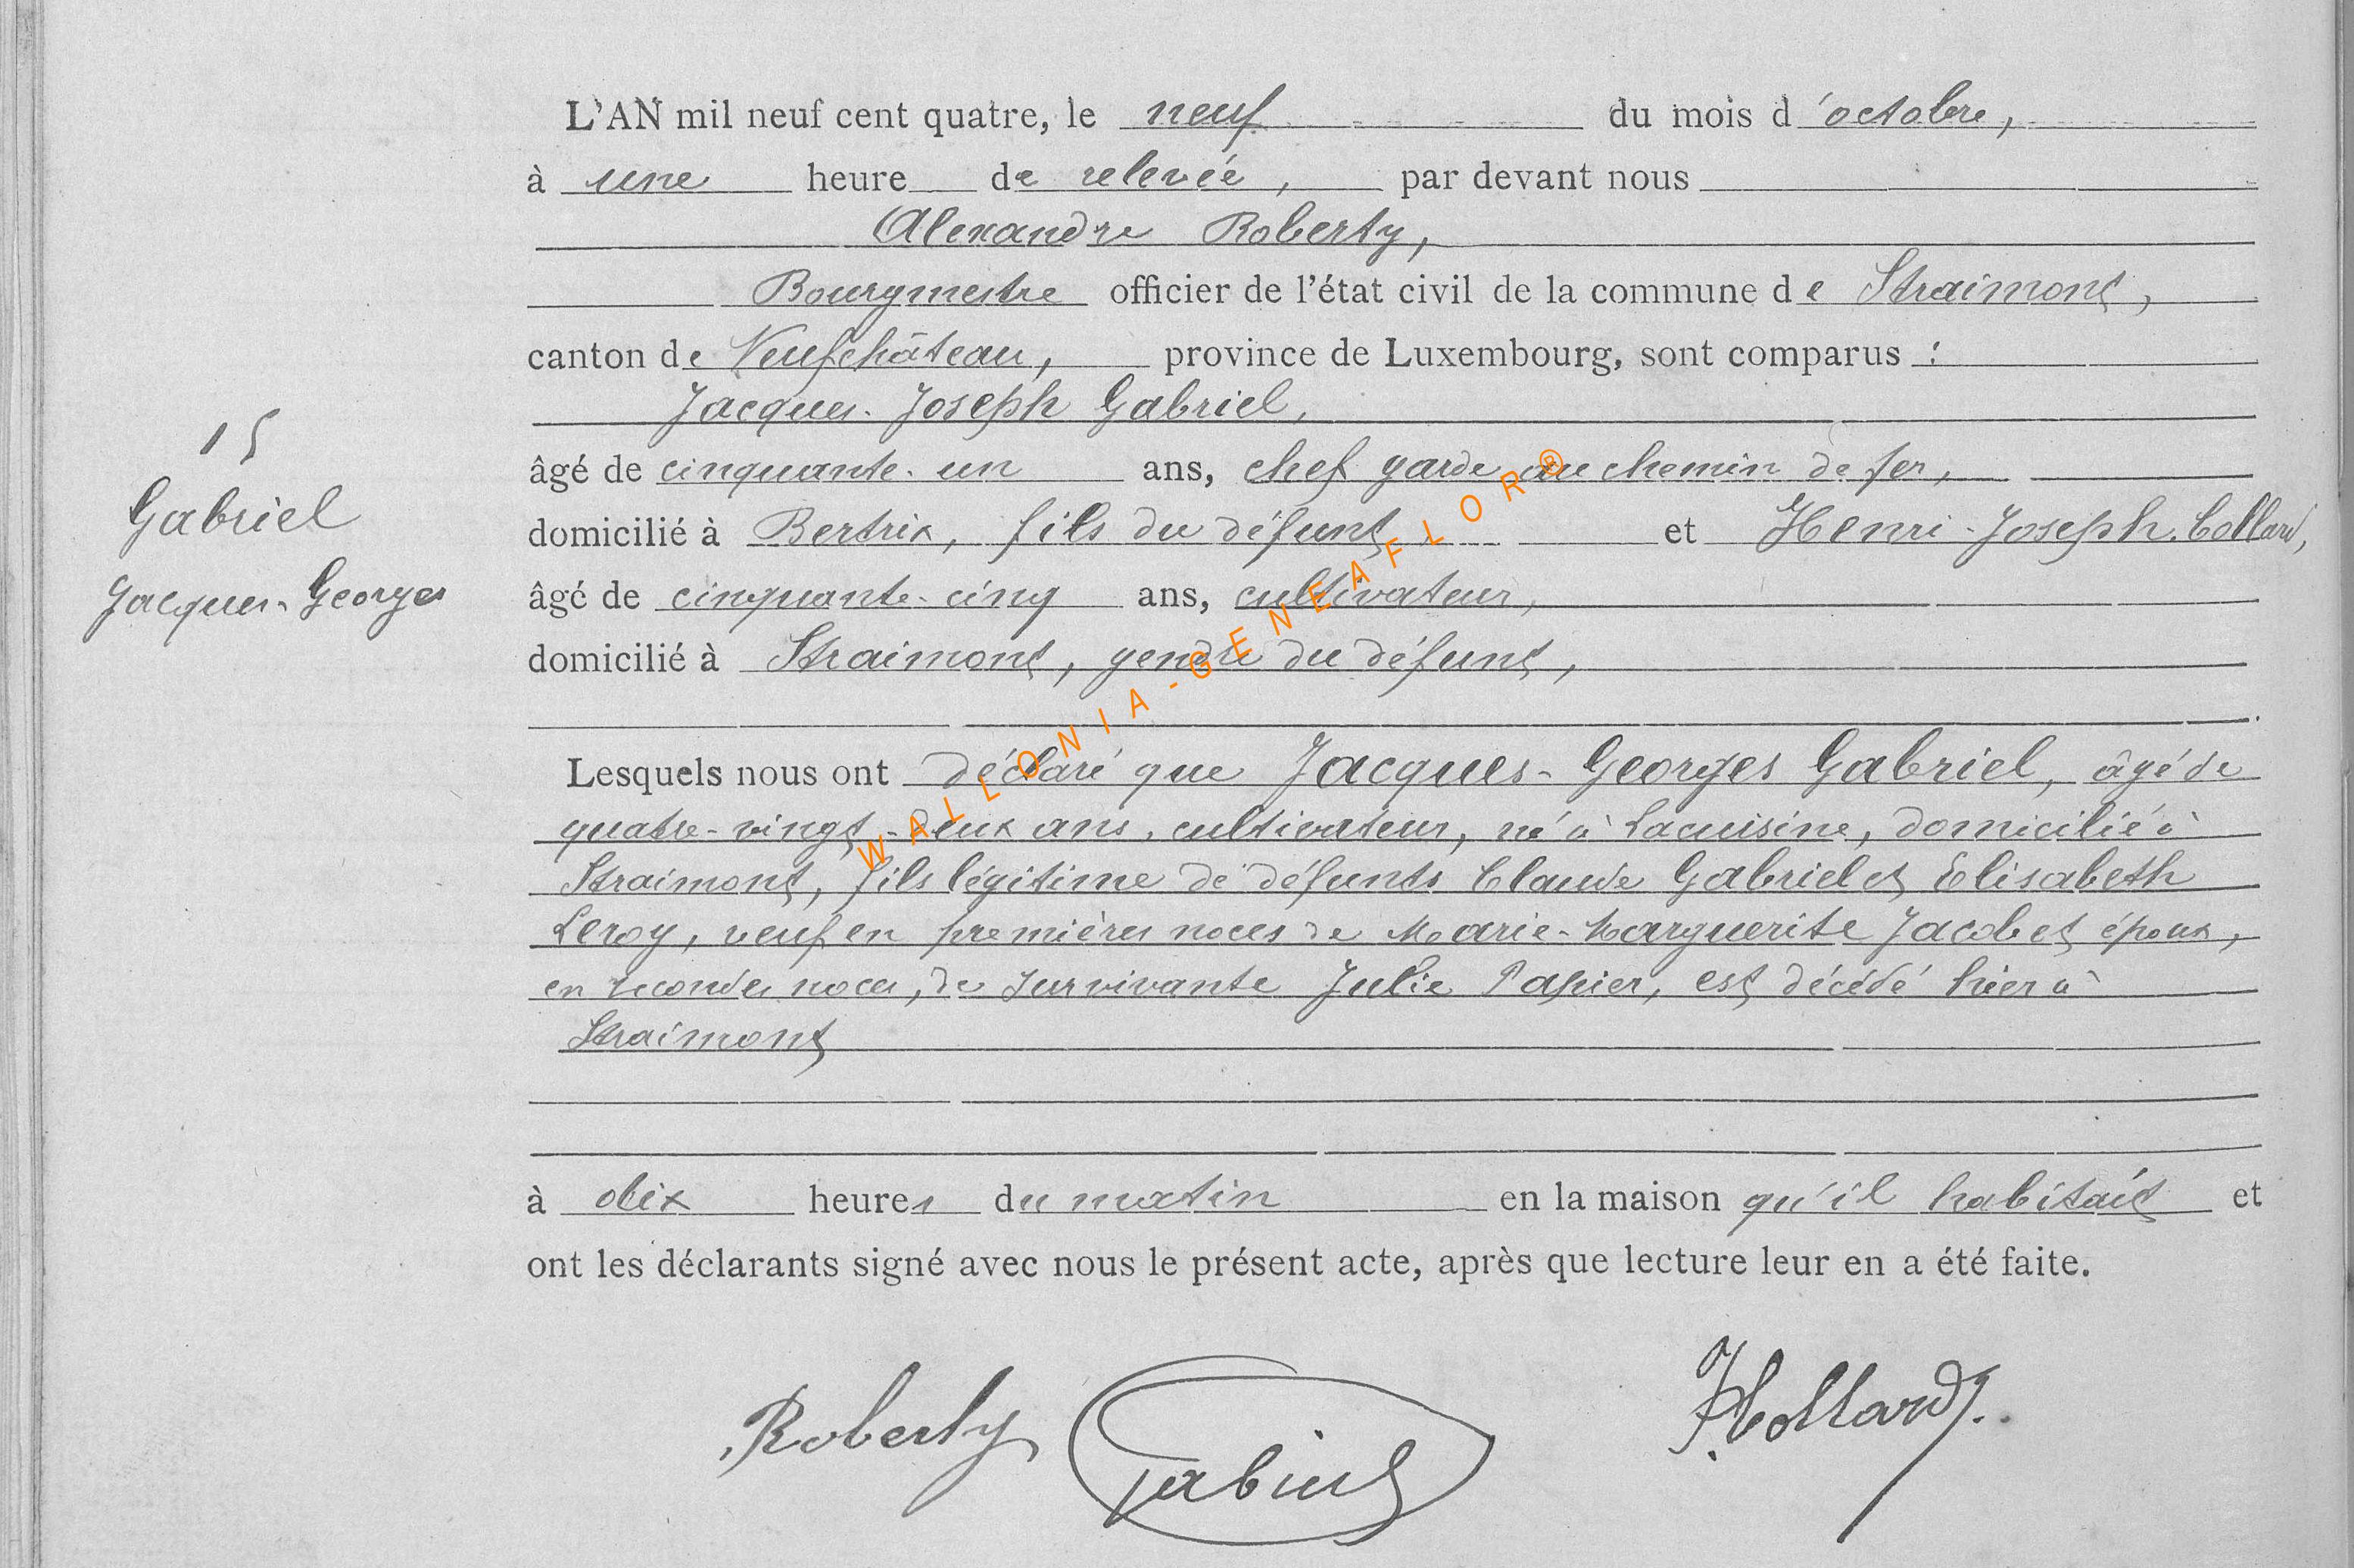 L'AN mil neuf cent quatre, le neuf du mois d'octobre,
à une heure de relevée, par devant nous
Alexandre Roberty,
Bourgmestre officier de l'état civil de la commune de Straimont,
canton de Neufchâteau, province de Luxembourg, sont comparus :
Jacques-Joseph Gabriel,
âgé de cinquante-un ans, chef garde au chemin de fer,
domicilié à Bertrix, fils du défunt et Henri-Joseph Collard,
âgé de cinquante-cinq ans, cultivateur,
domicilié à Straimont, gendre du défunt,
15
Gabriel
Jacques-Georges
Lesquels nous ont déclaré que Jacques-Georges Gabriel, âgé de
quatre-vingt-deux ans, cultivateur, né à Lacuisine, domicilié à
Straimont, fils légitime de défunts Claude Gabriel et Elisabeth
Leroy, veuf en premières noces de Marie-Marguerite Jacob et époux,
en secondes noces, de survivante Julie Papier, est décédé hier à
Straimont
à dix heures du matin en la maison qu'il habitait et
ont les déclarants signé avec nous le présent acte, après que lecture leur en a été faite.
Roberty Gabriel HCollard
WALLONIA-GENEAFLOR®